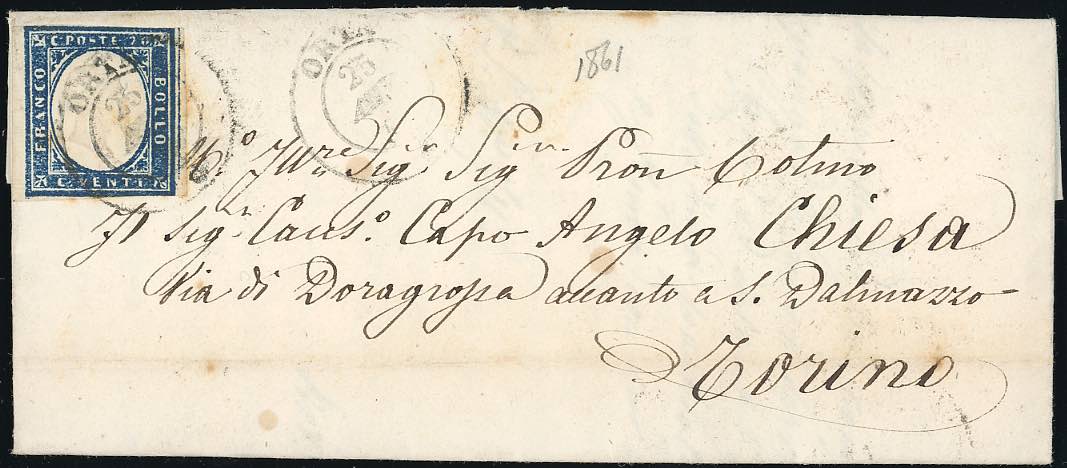 C. POSTE 20
FRANCO
BOLLO
C. VENTI
ORTA
25
ORTA
25
1861
Sigr Sigr Pron Cotino
Il Sigr Caus.o Capo Angelo Chiesa
Via di Doragrossa accanto a S. Dalmazzo
Torino